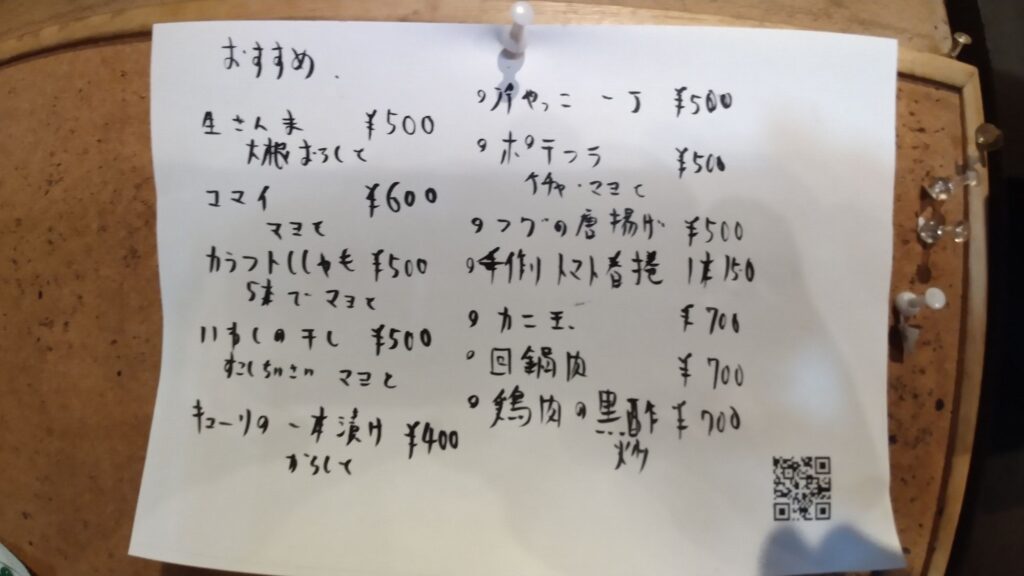 おすすめ
生さんま ¥500
大根おろしと
コマイ ¥600
マヨと
カラフトししゃも ¥500
5本で マヨと
いわしの干し ¥500
すこしちいさい マヨと
キューリの一本漬け ¥400
からしと
冷やっこ 一丁 ¥500
ポテフラ ¥500
ケチャ・マヨと
フグの唐揚げ ¥500
手作りトマト春捲 1本150
カニ玉 ¥700
回鍋肉 ¥700
鶏肉の黒酢 ¥700
炒め